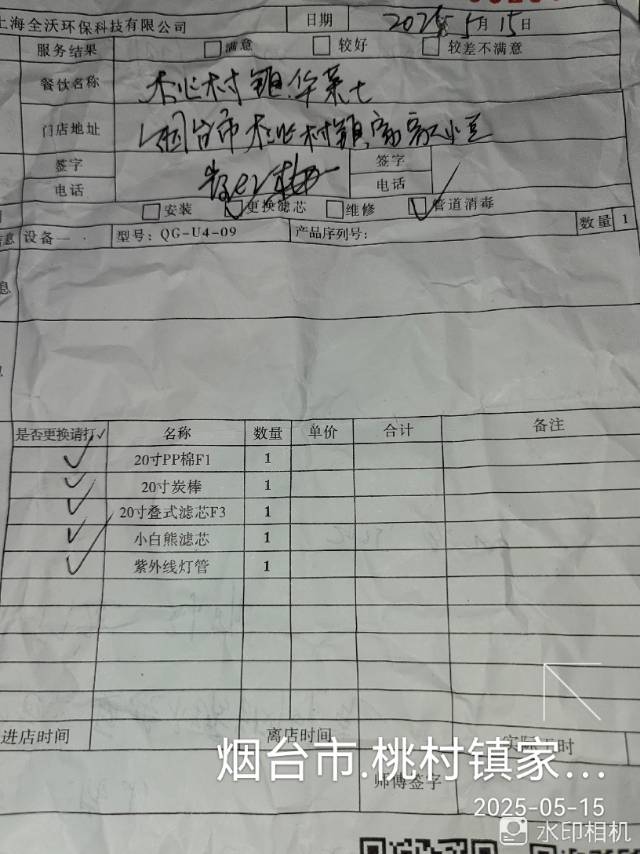 上海全沃环保科技有限公司 日期 2025年5月15日
服务结果 满意 较好 较差不满意
餐饮名称
门店地址
签字 签字
电话 电话
安装 更换滤芯 维修 管道消毒
设备一 型号：QG-U4-09 产品序列号： 数量 1
是否更换请打✓ 名称 数量 单价 合计 备注
✓ 20寸PP棉F1 1
✓ 20寸炭棒 1
✓ 20寸叠式滤芯F3 1
✓ 小白熊滤芯 1
✓ 紫外线灯管 1
进店时间 离店时间
师傅签字
烟台市.桃村镇家...
2025-05-15
水印相机